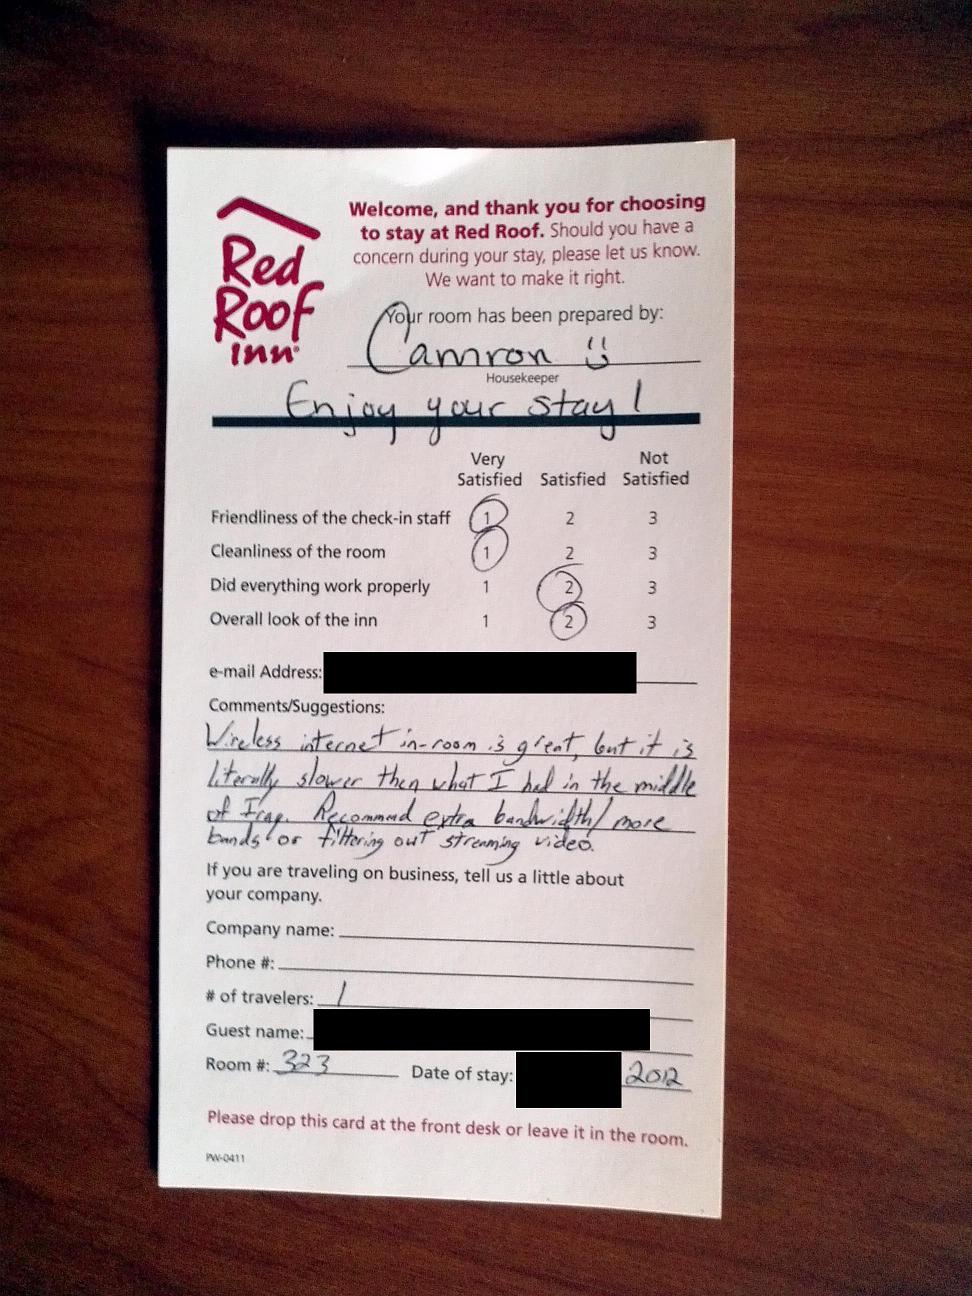 Red
Roof
Inn®
Welcome, and thank you for choosing
to stay at Red Roof. Should you have a
concern during your stay, please let us know.
We want to make it right.
Your room has been prepared by:
Camron
Housekeeper
Enjoy your stay!
Very Satisfied Satisfied Not Satisfied
Friendliness of the check-in staff 1 2 3
Cleanliness of the room 1 2 3
Did everything work properly 1 2 3
Overall look of the inn 1 2 3
e-mail Address:
Comments/Suggestions:
Wireless internet in-room is great, but it is
literally slower then what I had in the middle
of Iraq. Recommend extra bandwidth/more
bands or filtering out streaming video.
If you are traveling on business, tell us a little about
your company.
Company name:
Phone #:
# of travelers: 1
Guest name:
Room #: 323 Date of stay: 2012
Please drop this card at the front desk or leave it in the room.
PW-0411